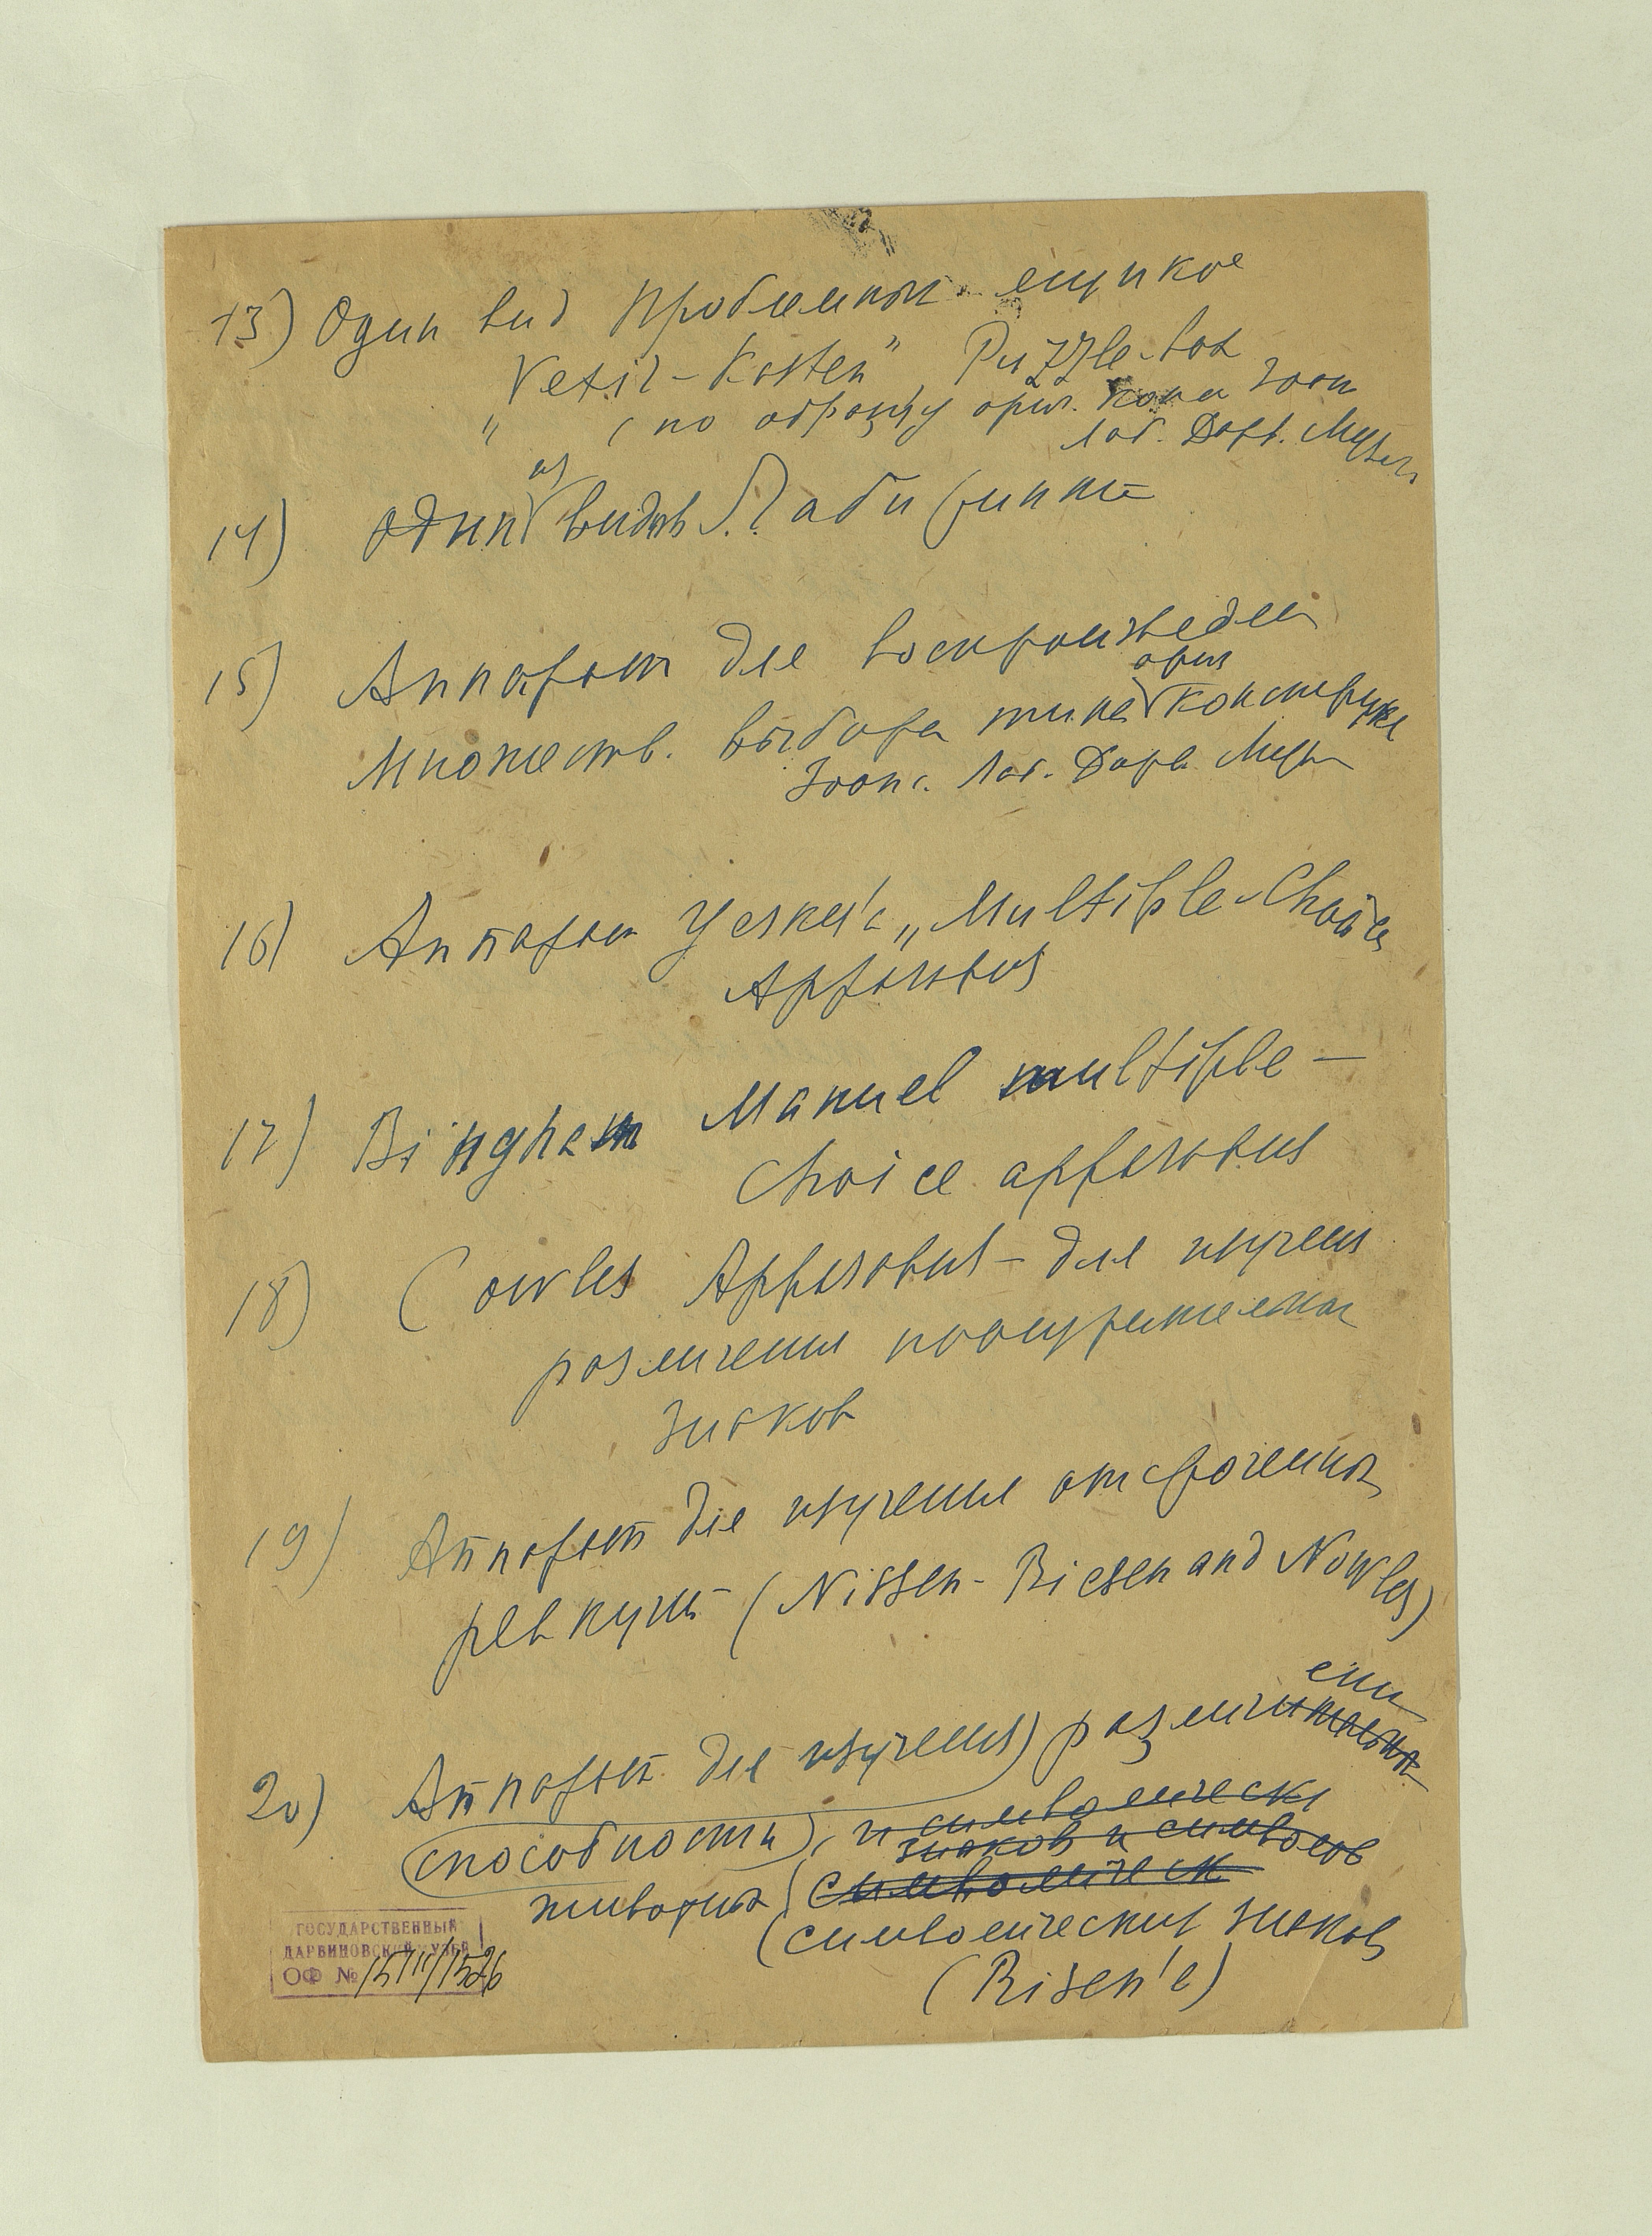 13) Один вид проблемных ящиков
"Vexir-Kasten" Puzzle-box
(по образцу ориг. Зооп
Лаб. Дарв. Музея
14) Один из видов Лабиринта
15) Аппарат для воспроизведен
ориг
Множеств. выбора типа конструкц
Зоопс. Лаб. Дарв. Муз
16) Аппарат Yerkes'a „Multiple-Choice
Apparatus
17) Bingham Manuel multiple –
Choice apparatus
18) Cowles Apparatus – для изучен
различения поощрительных
знаков
19) Аппарат для изучения отсроченных
реакций (Nissen-Riesen and Nowles)
20) Аппарат для изучения различительных
ени
способности, и символически
знаков и символов
животных символическ
(символических знаков
(Risen'a)
ГОСУДАРСТВЕННЫЙ
ДАРВИНОВСКИЙ МУЗЕЙ
ОФ №